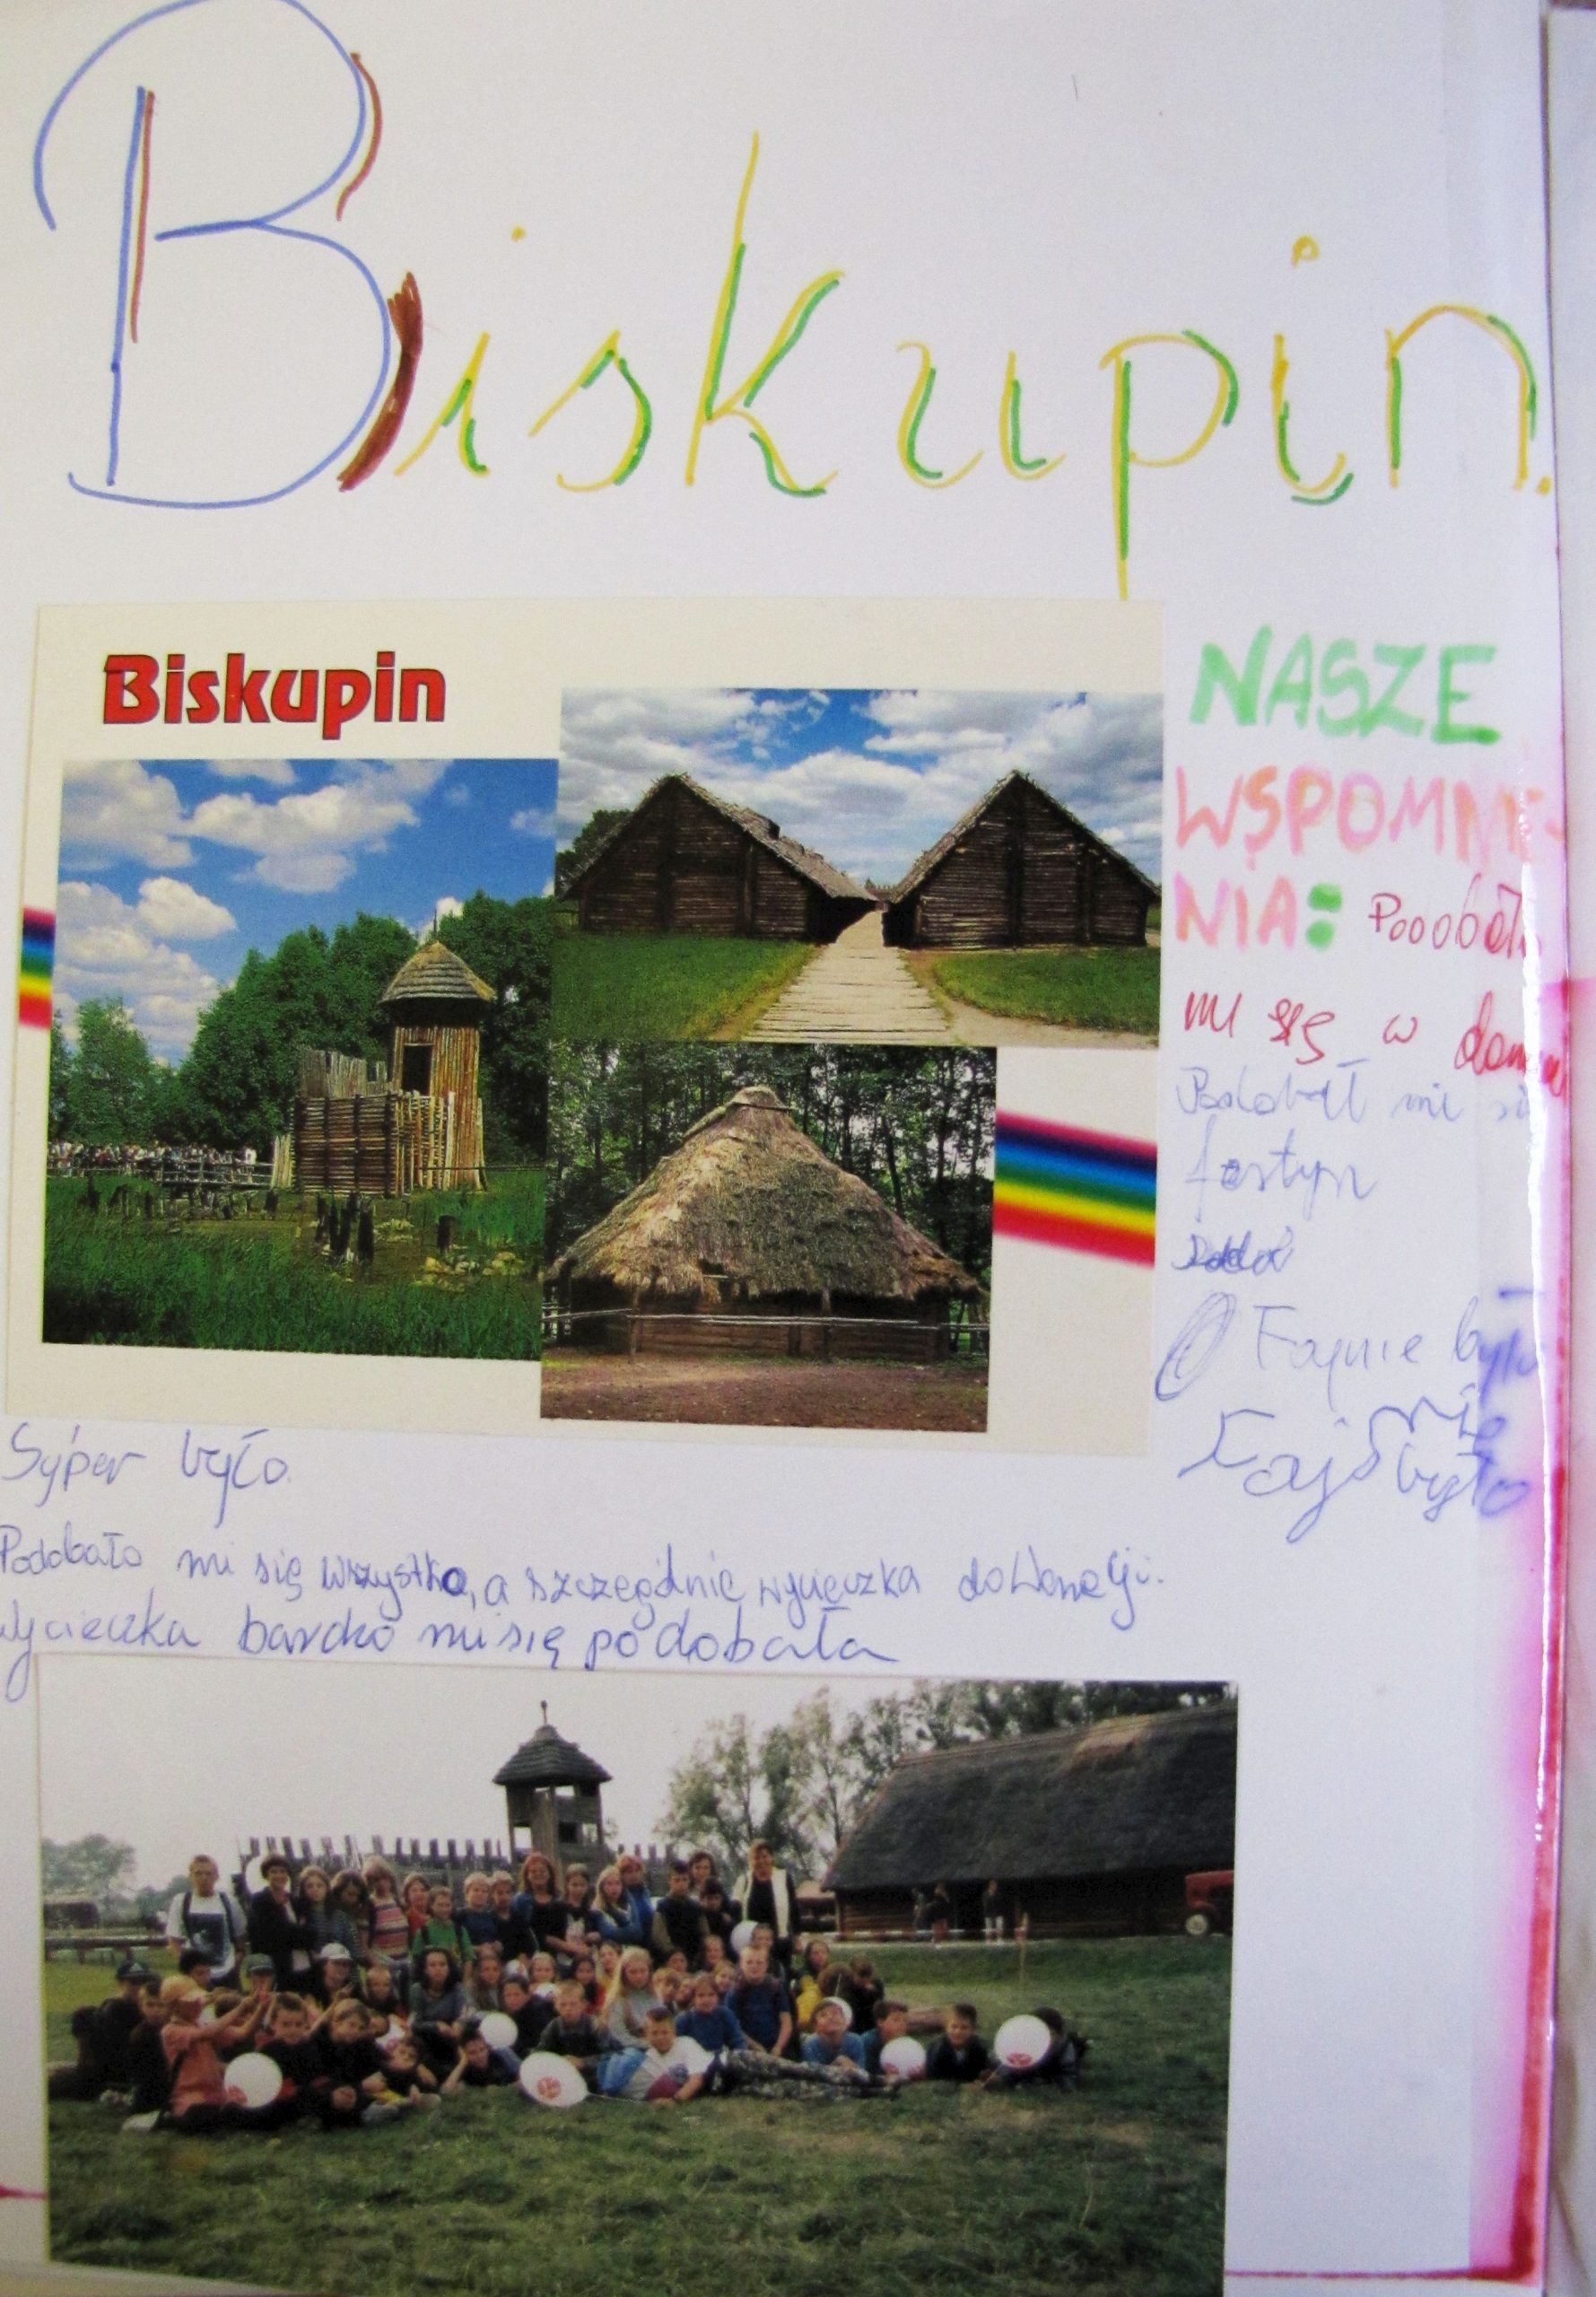 Biskupin.
Biskupin
NASZE
WSPOMNIE-
NIA: Podobało
mi się w domu
Podobał mi się
festyn
Fajnie było
Fajnie
było
Syper było.
Podobało mi się wszystko, a szczególnie wycieczka do Wenecji.
Wycieczka bardzo mi się podobała